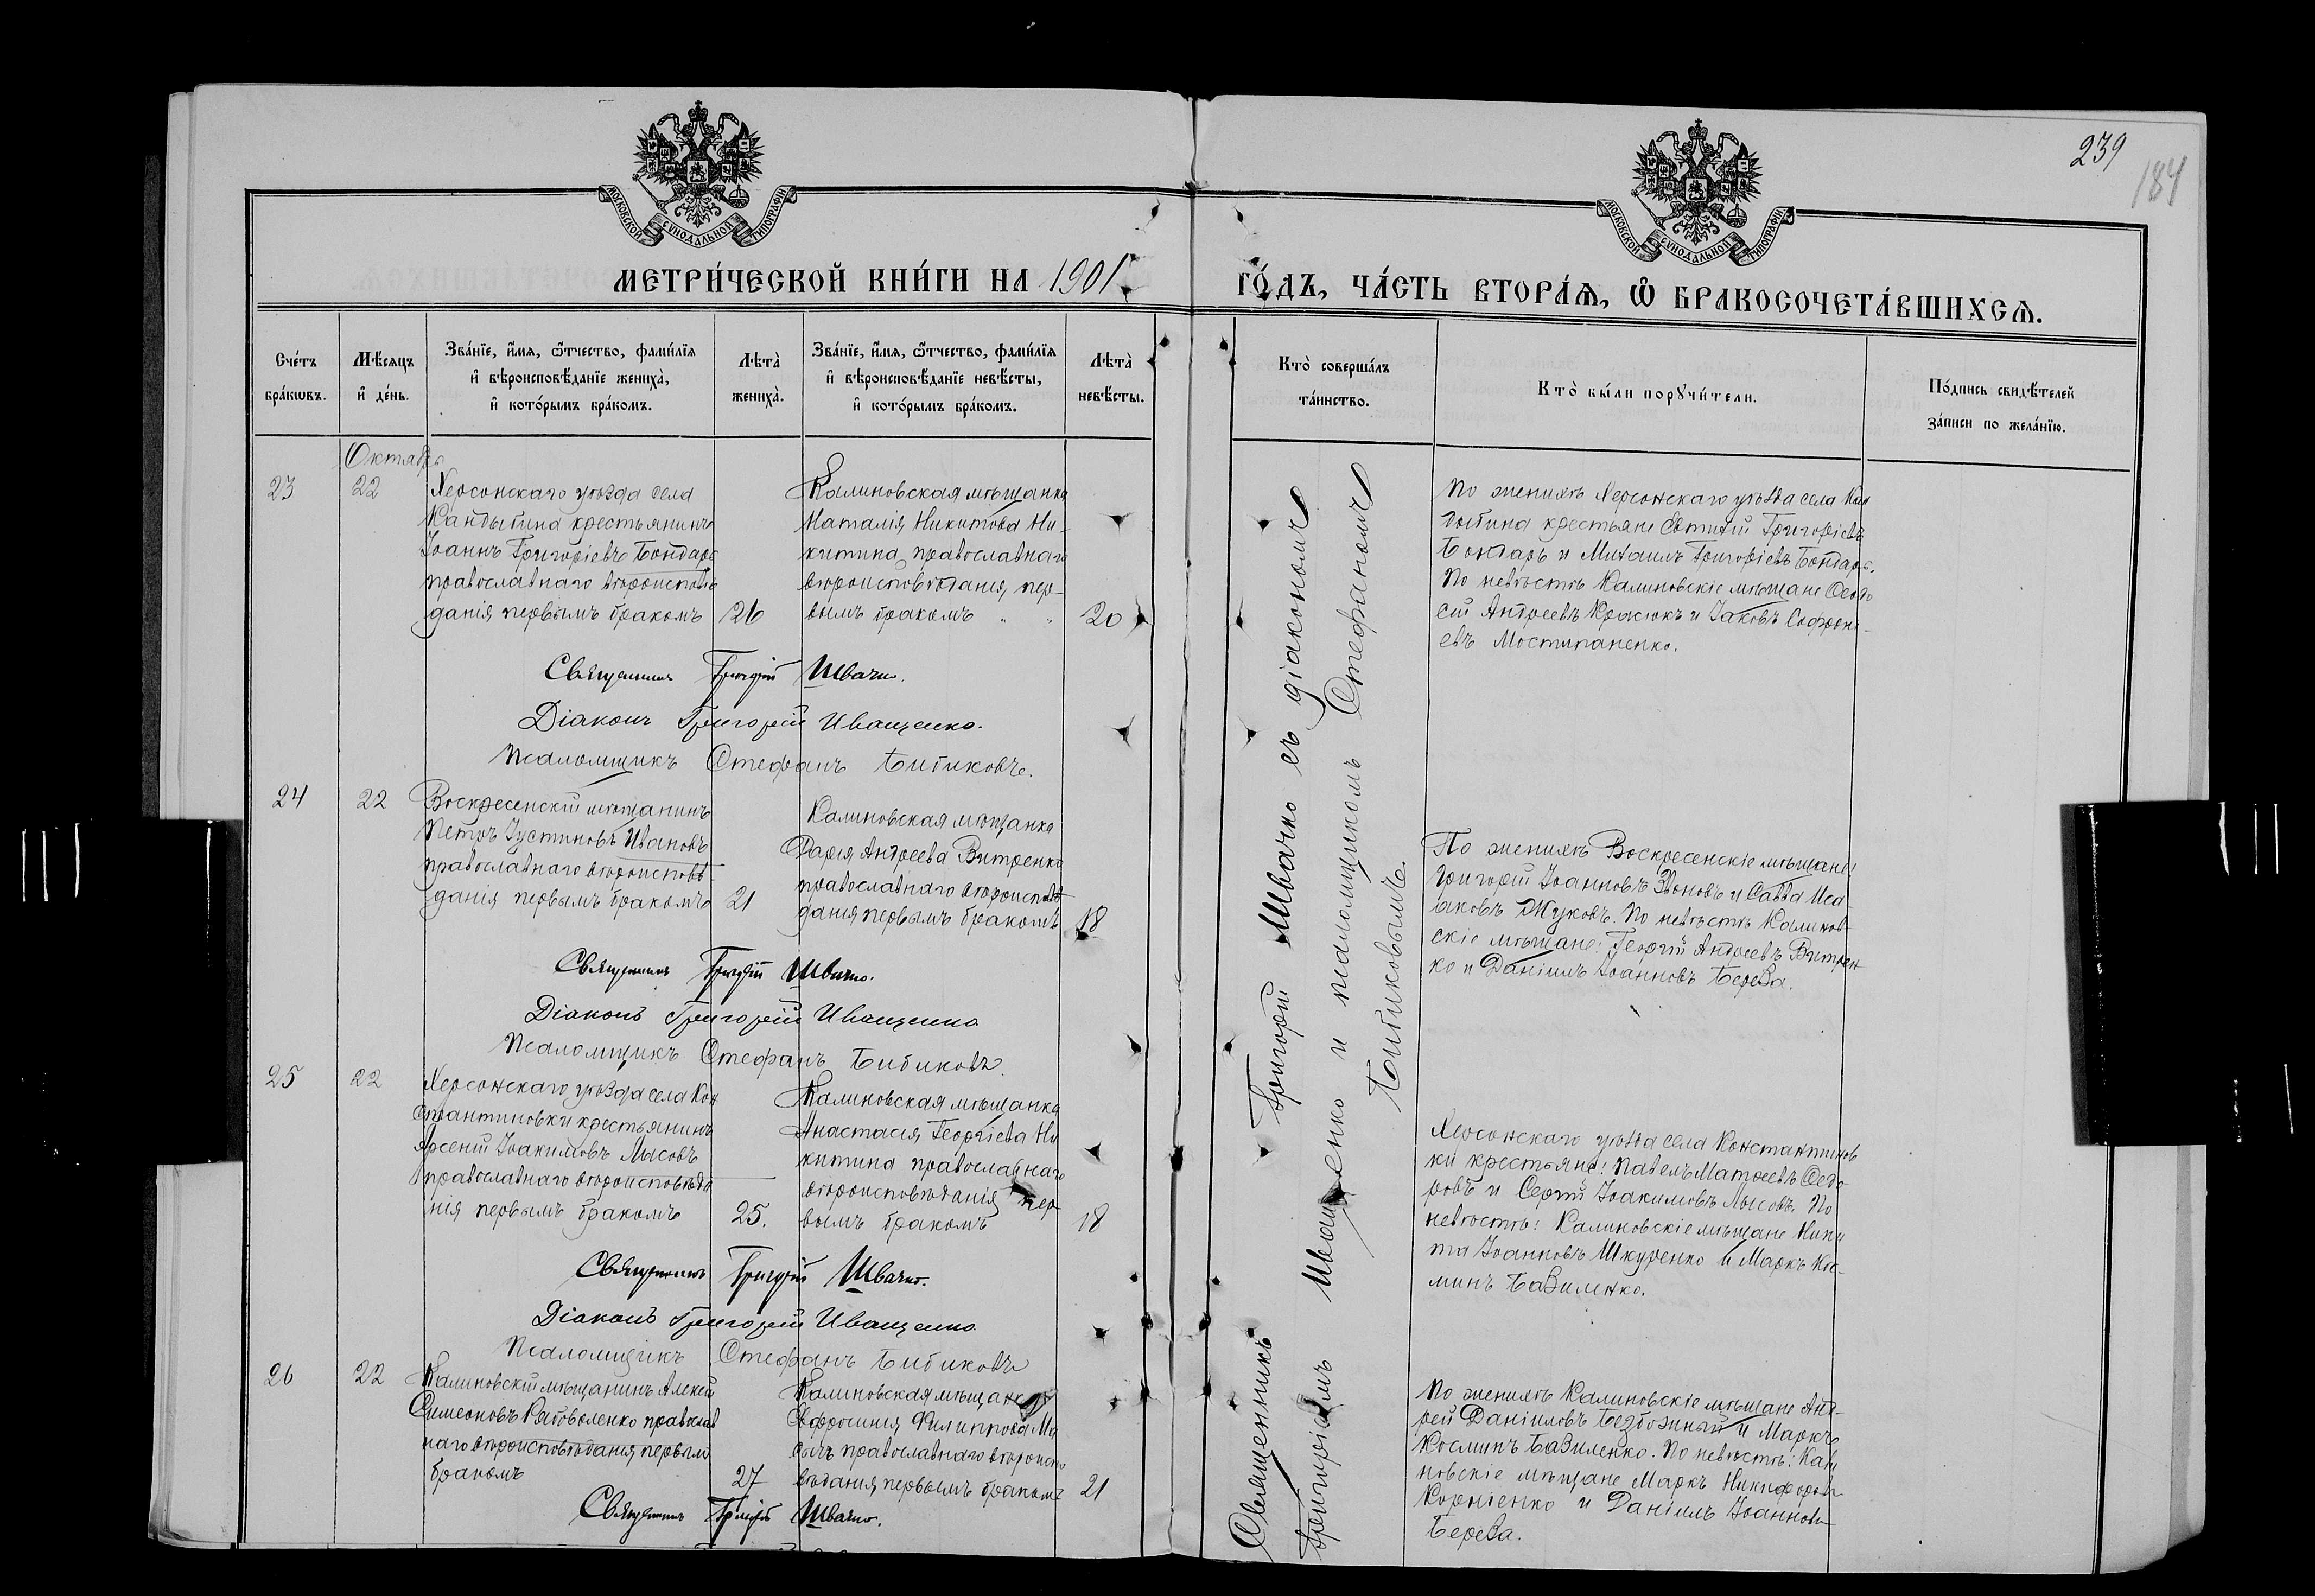 239
184
МОСКОВСКОЙ СѴНОДАЛЬНОЙ ТИПОГРАФІИ
МОСКОВСКОЙ СѴНОДАЛЬНОЙ ТИПОГРАФІИ
МЕТРИ́ЧЕСКОЙ КНИ́ГИ НА 1901
ГО́ДЪ, ЧА́СТЬ ВТОРА́Ѧ, Ѽ БРАКОСОЧЕТА́ВШИХСѦ.
Сче́тъ
бра́кѡвъ.
Мѣ́сѧцъ
и҆ де́нь.
Зва́нїе, и҆́мѧ, ѻ҆́тчество, фами́лїѧ
и҆ вѣроисповѣ́данїе жениха̀,
и҆ кото́рымъ бра́комъ.
Лѣта̀
жениха̀.
Зва́нїе, и҆́мѧ, ѻ҆́тчество, фами́лїѧ
и҆ вѣроисповѣ́данїе невѣ́сты,
и҆ кото́рымъ бра́комъ.
Лѣта̀
невѣ́сты.
Кто̀ соверша́лъ
та́инство.
Кто̀ бы́ли порꙋчи́тели.
По́дпись свидѣ́телей
за́писи по жела́нїю.
Октябрь
23
22
Херсонскаго уѣзда села
Кандыбина крестьянинъ
Іоаннъ Григоріевъ Бондарь
православнаго вѣроисповѣ
данія первымъ бракомъ
26
Калиновская мѣщанка
Наталія Никитова Ни-
китина, православнаго
вѣроисповѣданія, пер-
вымъ бракомъ " "
20
По женихѣ Херсонскаго уѣзда села Кан
дыбина крестьяне Евтихій Григоріевъ
Бондарь и Михаилъ Григоріевъ Бондарь.
По невѣстѣ Калиновскіе мѣщане Ѳеодо
сій Андреевъ Красюкъ и Іаковъ Софроні-
евъ Мостипаненко.
Священникъ Григорій Швачко.
Діаконъ Григорій Иващенко.
Псаломщикъ Стефанъ Бибиковъ.
24
22
Воскресенскій мѣщанинъ
Петръ Іустиновъ Ивановъ
православнаго вѣроисповѣ-
данія первымъ бракомъ
21
Калиновская мѣщанка
Дарія Андреева Витренко
православнаго вѣроисповѣ
данія первымъ бракомъ
18
По женихѣ Воскресенскіе мѣщане:
Григорій Іоанновъ и Савва Иса-
аковъ Жуковъ. По невѣстѣ Калинов-
скіе мѣщане: Георгій Андреевъ Витрен
ко и Даніилъ Іоанновъ Береза.
Священникъ Григорій Швачко.
Діаконъ Григорій Иващенко
Псаломщикъ Стефанъ Бибиковъ.
25
22
Херсонскаго уѣзда села Кон
стантиновки крестьянинъ
Арсеній Іоакимовъ Лысовъ
православнаго вѣроисповѣда
нія первымъ бракомъ
25.
Калиновская мѣщанка
Анастасія Георгіева Ни
китина православнаго
вѣроисповѣданія пер
вымъ бракомъ
18
Херсонскаго уѣзда села Константинов
ки крестьяне: Павелъ Матѳеевъ Ѳедо
ровъ и Сергій Іоакимовъ Лысовъ. По
невѣстѣ: Калиновскіе мѣщане Ники
та Іоанновъ Шкуренко и Маркъ Кос-
минъ Базиленко.
Священникъ Григорій Швачко.
Діаконъ Григорій Иващенко.
Псаломщикъ Стефанъ Бибиковъ
26
22
Калиновскій мѣщанинъ Алексій
Симеоновъ Рябоволенко православ
наго вѣроисповѣданія первымъ
бракомъ
27
Калиновская мѣщанка
Евфросинія Филиппова Ма
православнаго вѣроиспо
вѣданія первымъ бракомъ
21
По женихѣ Калиновскіе мѣщане Анд-
рей Даніиловъ Безбожный и Маркъ
Косминъ Базиленко. По невѣстѣ: Кали
новскіе мѣщане Маркъ Никифоровъ
Корніенко и Даніилъ Іоанновъ
Береза.
Священникъ Григорій Швачко.
Священникъ Григорій Швачко съ діакономъ
Григоріемъ Иващенко и псаломщикомъ Стефаномъ
Бибиковымъ.